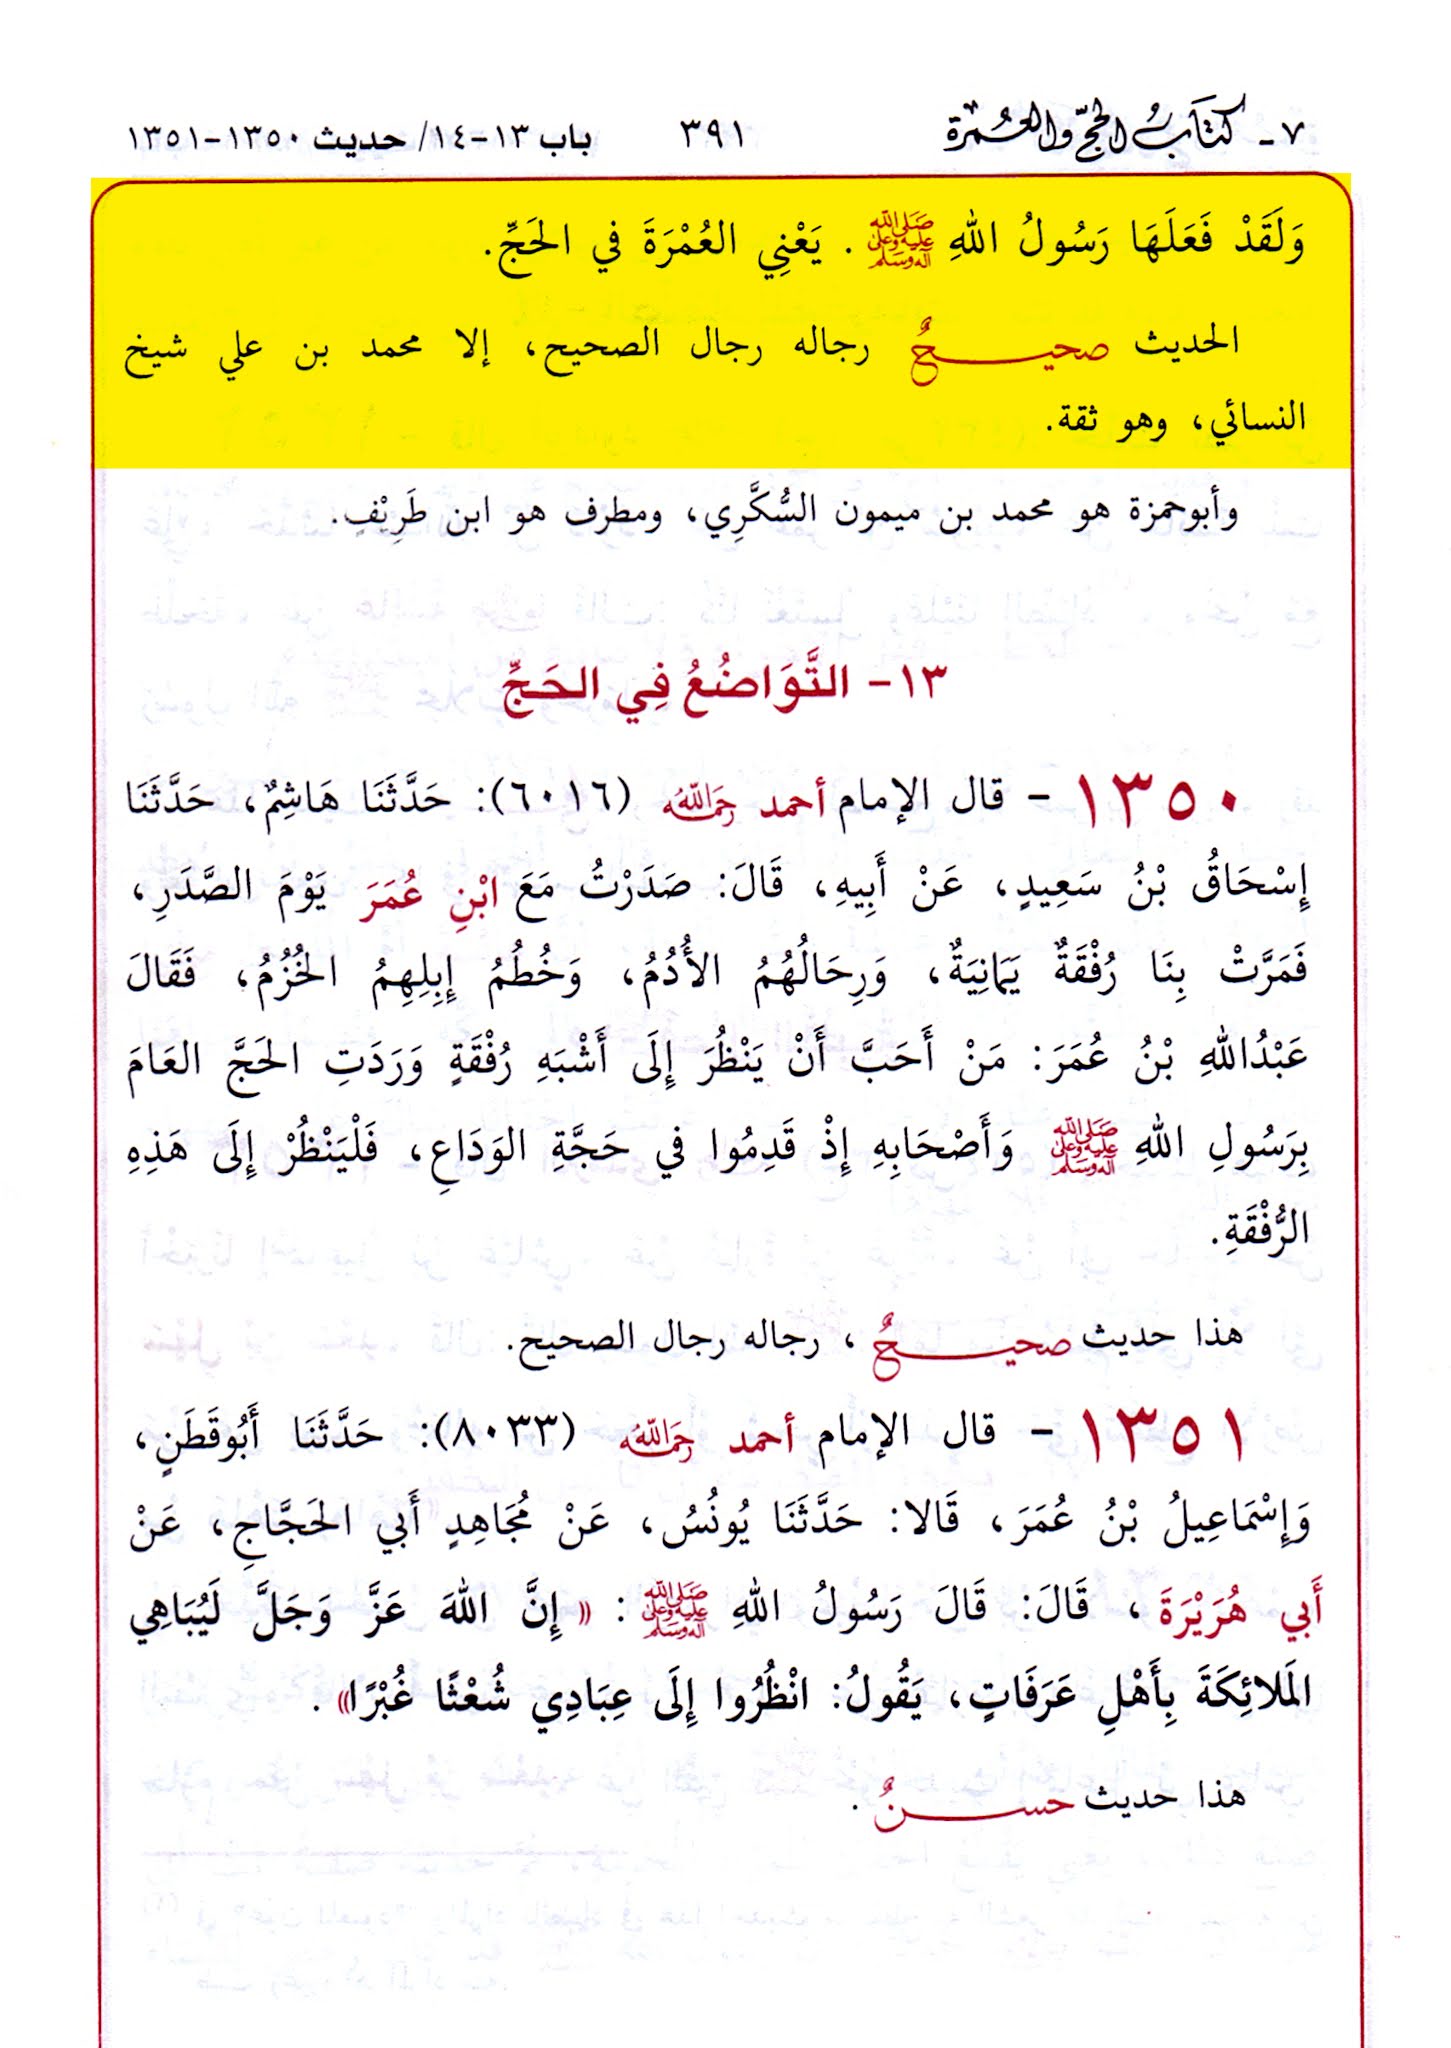 ٧- كتاب الحج والعمرة ٣٩١ باب ١٣-١٤/ حديث ١٣٥٠-١٣٥١
وَلَقَدْ فَعَلَهَا رَسُولُ اللهِ صَلَّى اللهُ عَلَيْهِ وَعَلَى آلِهِ وَسَلَّمَ . يَعْنِي العُمْرَةَ في الحَجِّ.
الحديث صحيحٌ رجاله رجال الصحيح، إلا محمد بن علي شيخ
النسائي، وهو ثقة.
وأبوحمزة هو محمد بن ميمون السُّكَّرِي، ومطرف هو ابن طَرِيْفٍ.
١٣- التَّوَاضُعُ فِي الحَجِّ
١٣٥٠ - قال الإمام أحمد رحمه الله (٦٠١٦): حَدَّثَنَا هَاشِمٌ، حَدَّثَنَا
إِسْحَاقُ بْنُ سَعِيدٍ، عَنْ أَبِيهِ، قَالَ: صَدَرْتُ مَعَ ابْنِ عُمَرَ يَوْمَ الصَّدَرِ،
فَمَرَّتْ بِنَا رُفْقَةٌ يَمَانِيَةٌ، وَرِحَالُهُمُ الأُدُمُ، وَخُطُمُ إِبِلِهِمُ الخُزُمُ، فَقَالَ
عَبْدُاللهِ بْنُ عُمَرَ: مَنْ أَحَبَّ أَنْ يَنْظُرَ إِلَى أَشْبَهِ رُفْقَةٍ وَرَدَتِ الحَجَّ العَامَ
بِرَسُولِ اللهِ صَلَّى اللهُ عَلَيْهِ وَعَلَى آلِهِ وَسَلَّمَ وَأَصْحَابِهِ إِذْ قَدِمُوا في حَجَّةِ الوَدَاعِ، فَلْيَنْظُرْ إِلَى هَذِهِ
الرُّفْقَةِ.
هذا حديث صحيحٌ ، رجاله رجال الصحيح.
١٣٥١ - قال الإمام أحمد رحمه الله (٨٠٣٣): حَدَّثَنَا أَبُوقَطَنٍ،
وَإِسْمَاعِيلُ بْنُ عُمَرَ، قَالا: حَدَّثَنَا يُونُسُ، عَنْ مُجَاهِدٍ أَبي الحَجَّاجِ، عَنْ
أَبي هُرَيْرَةَ ، قَالَ: قَالَ رَسُولُ اللهِ صَلَّى اللهُ عَلَيْهِ وَعَلَى آلِهِ وَسَلَّمَ : «إِنَّ اللهَ عَزَّ وَجَلَّ لَيُبَاهِي
المَلائِكَةَ بِأَهْلِ عَرَفَاتٍ، يَقُولُ: انْظُرُوا إِلَى عِبَادِي شُعْثًا غُبْرًا» .
هذا حديث حسنٌ .